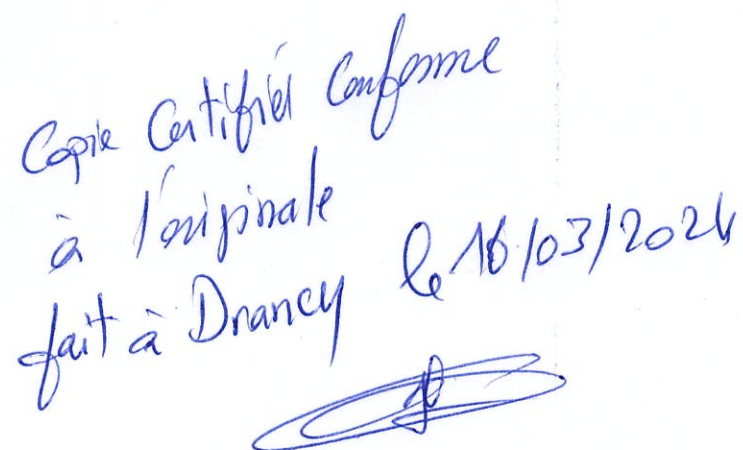 Copie Certifiée Conforme
à l'originale
fait à Drancy le 16/03/2024